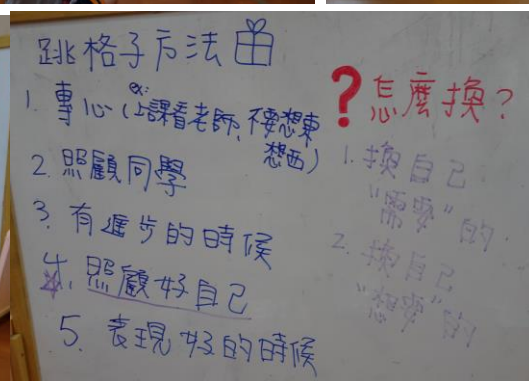 跳格子方法
1. 專心(ex: 上課看老師、不要想東
想西)
2. 照顧同學
3. 有進步的時候
4. 照顧好自己
5. 表現好的時候
?怎麼換?
1. 換自己
"需要"的
2. 換自己
"想要"的